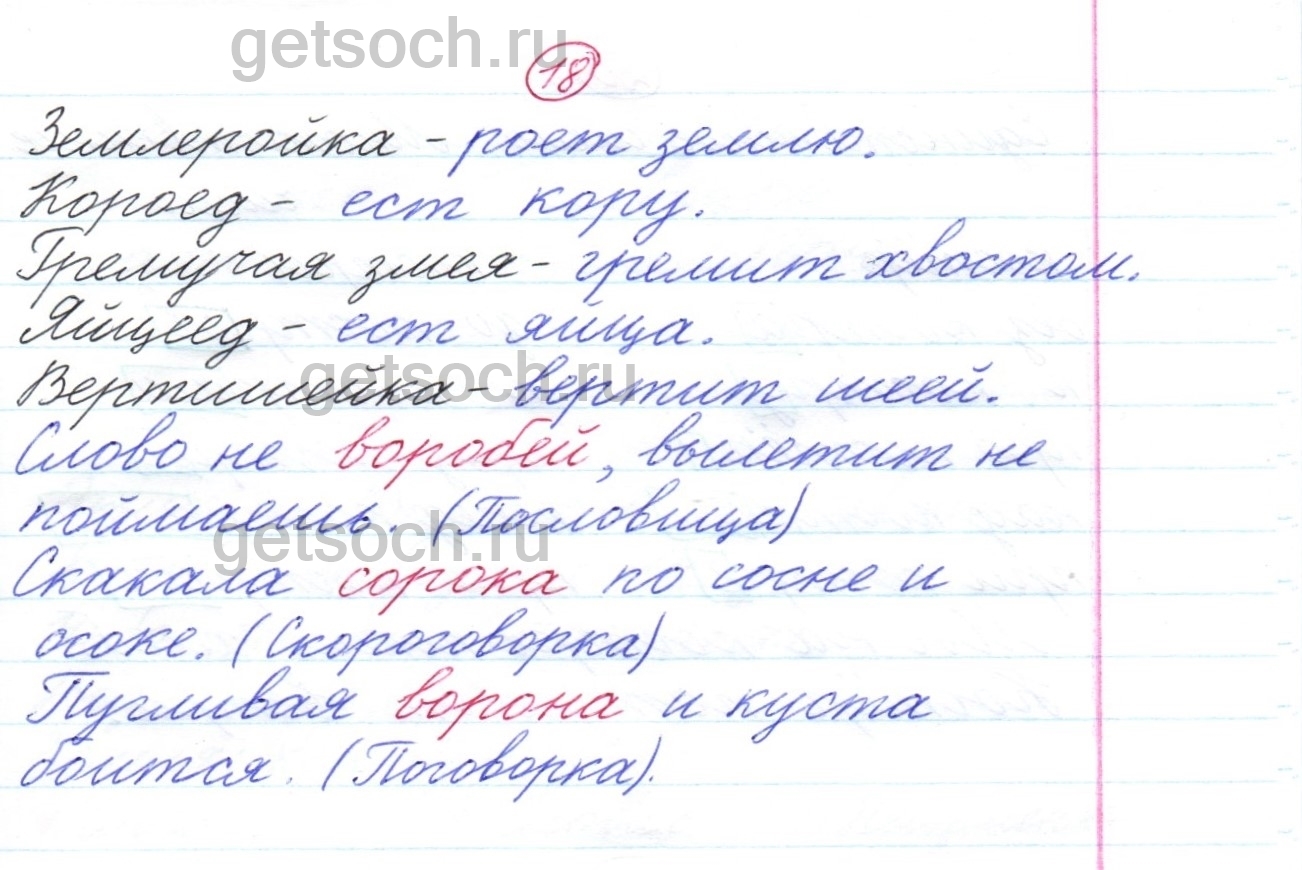 getsoch.ru
18
Землеройка - роет землю.
Короед - ест кору.
Гремучая змея - гремит хвостом.
Яйцеед - ест яйца.
getsoch.ru
Вертишейка - вертит шеей.
Слово не воробей, вылетит не
поймаешь. (Пословица)
getsoch.ru
Скакала сорока по сосне и
осоке. (Скороговорка)
Пугливая ворона и куста
боится. (Поговорка).